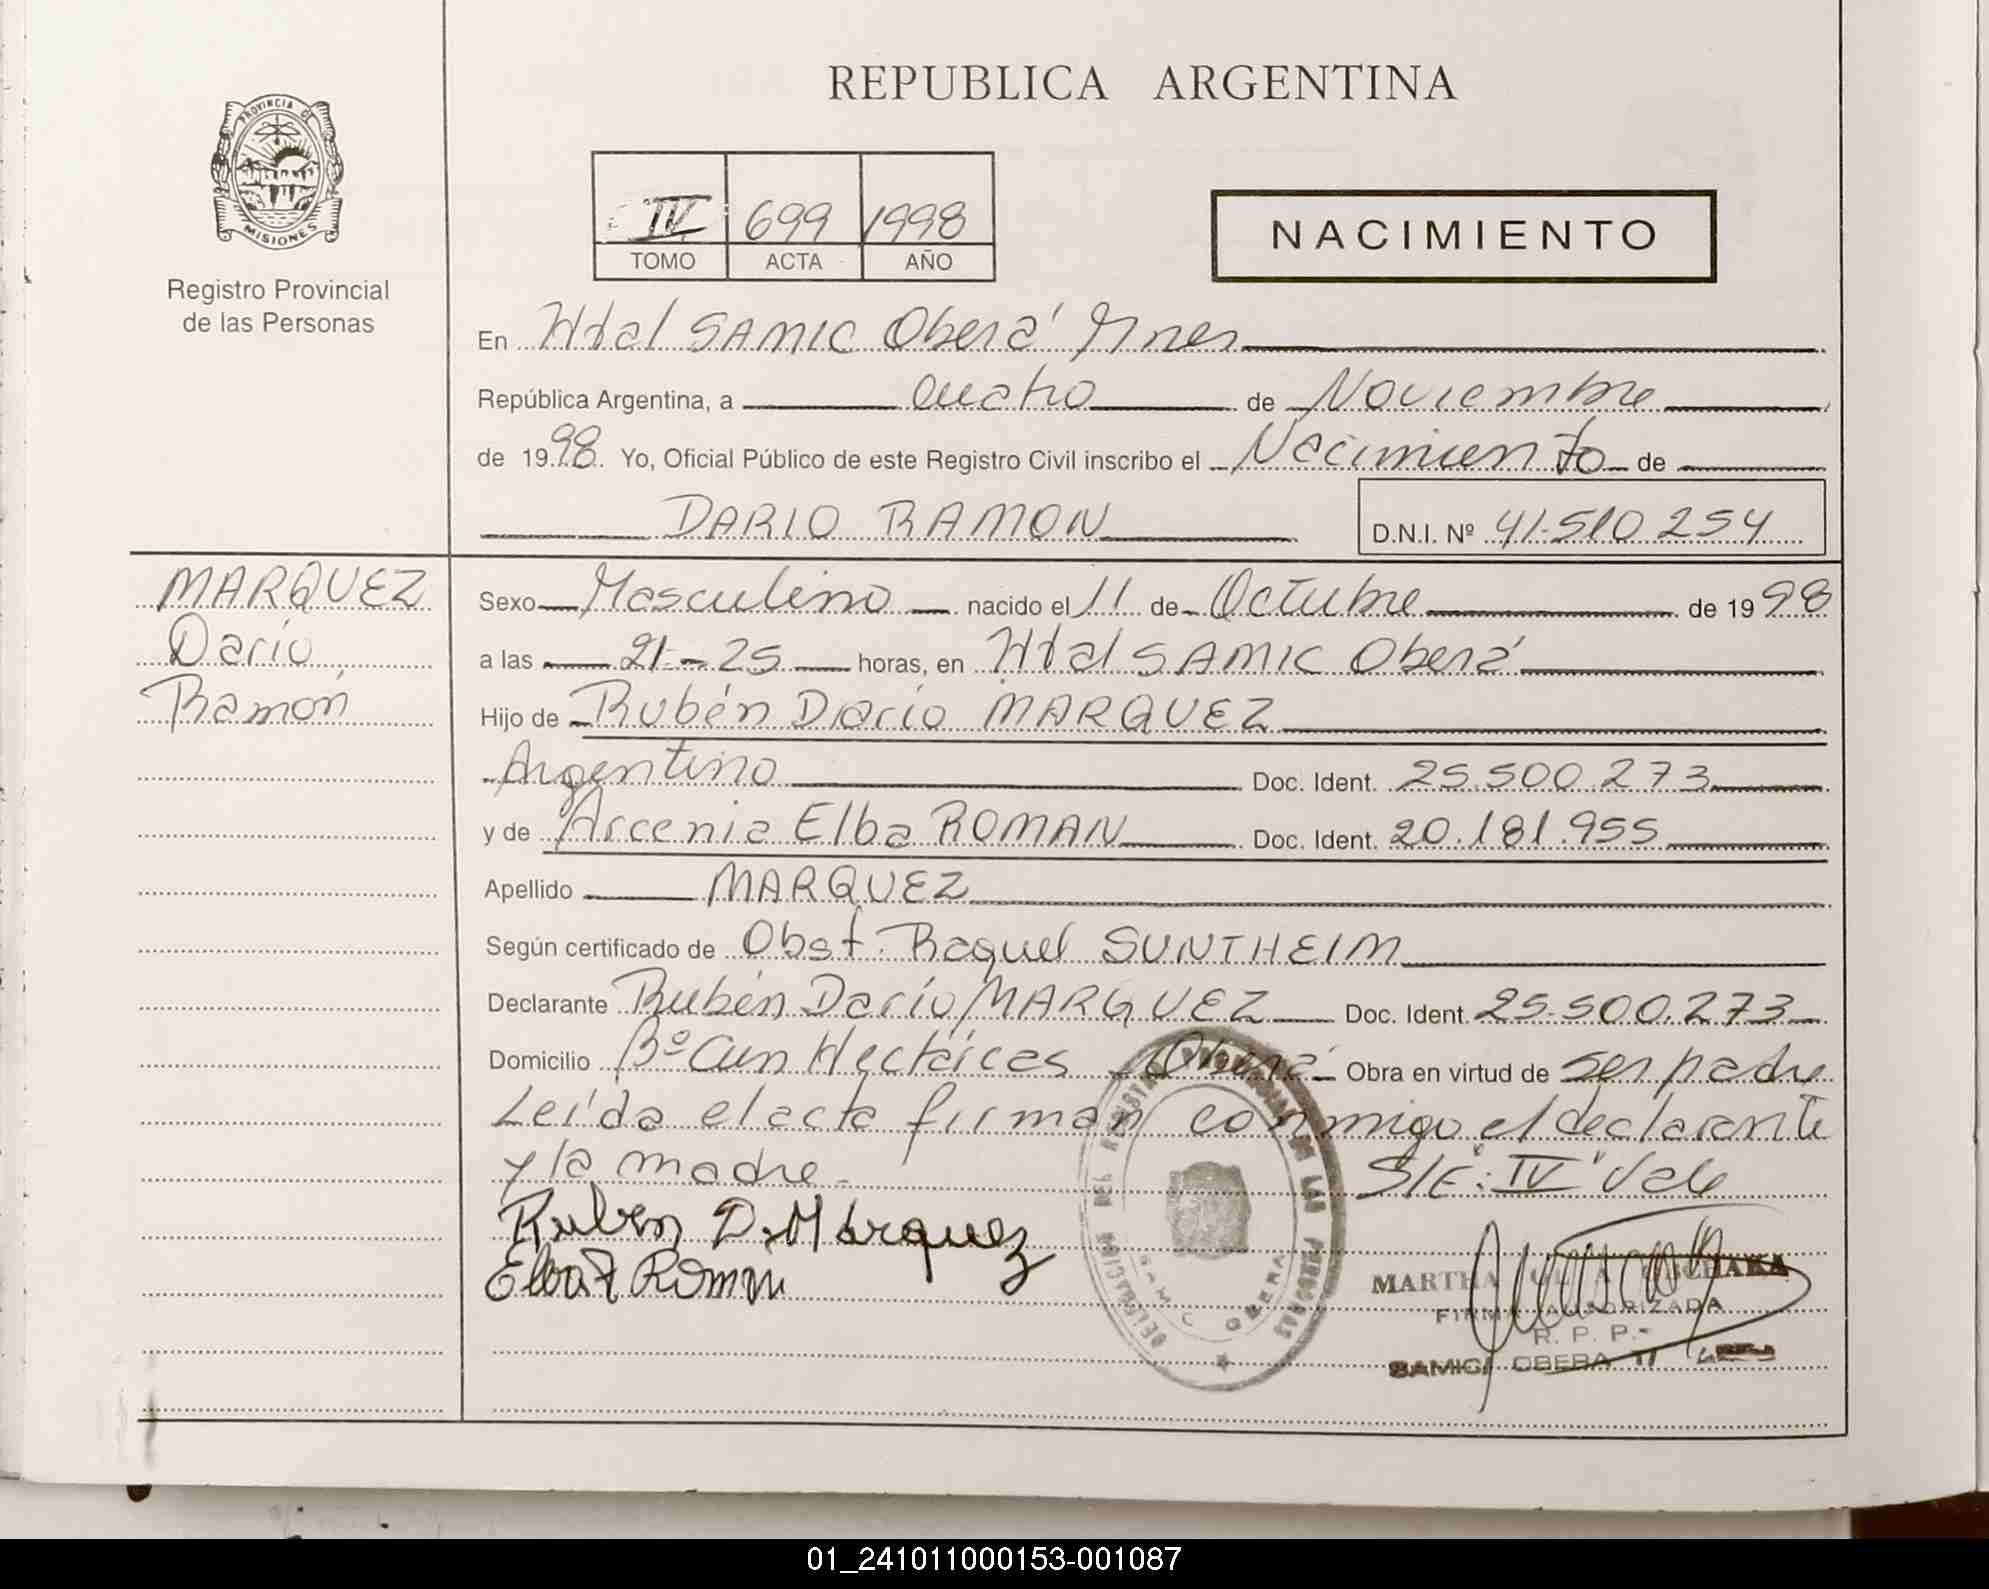 REPUBLICA ARGENTINA
PROVINCIA DE
MISIONES
Registro Provincial
de las Personas
IV 699 1998
TOMO ACTA AÑO
NACIMIENTO
En Htal SAMIC Oberá Mnes
República Argentina, a cuatro de Noviembre
de 1998. Yo, Oficial Público de este Registro Civil inscribo el Nacimiento de
DARIO RAMON D.N.I. Nº 41.510.254
MARQUEZ
Darío
Ramón
Sexo Masculino nacido el 11 de Octubre de 1998
a las 21-25 horas, en Htal SAMIC Oberá
Hijo de Rubén Darío MARQUEZ
Argentino Doc. Ident. 25.500.273
y de Arcenia Elba ROMAN Doc. Ident. 20.181.955
Apellido MARQUEZ
Según certificado de Obst. Raquel SUNTHEIM
Declarante Rubén Darío MARQUEZ Doc. Ident. 25.500.273
Domicilio Bº Cien Hectáreas Oberá Obra en virtud de ser padre
Leída el acta firman conmigo el declarante
y la madre. S/E: "IV" Vale
Ruben D. Márquez
Elba Roman
DELEGACION DEL REGISTRO PROVINCIAL DE LAS PERSONAS
SAMIC OBERA
MARTHA
FIRMA AUTORIZADA
R. P. P.-
SAMIC OBERA
01_241011000153-001087